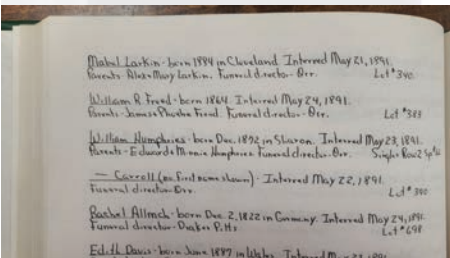 Mabel Larkin - born 1884 in Cleveland. Interred May 21, 1891.
Parents - Alex & Mary Larkin. Funeral director - Orr. Lot #340
William R Freed - born 1864. Interred May 24, 1891.
Parents - James & Phoebe Freed. Funeral director - Orr. Lot #383
William Humphries - born Dec. 1892 in Sharon. Interred May 23, 1891.
Parents - Edward & Minnie Humphries Funeral director - Orr. Single Row 2
— Carroll (no first name shown) - Interred May 22, 1891.
Funeral director - Orr. Lot #390
Rachel - born Dec. 2, 1822 in Germany. Interred May 24, 1891.
Funeral director - Drakes Lot #698
Edith Davis - born June 1889 in Wales. Interred May